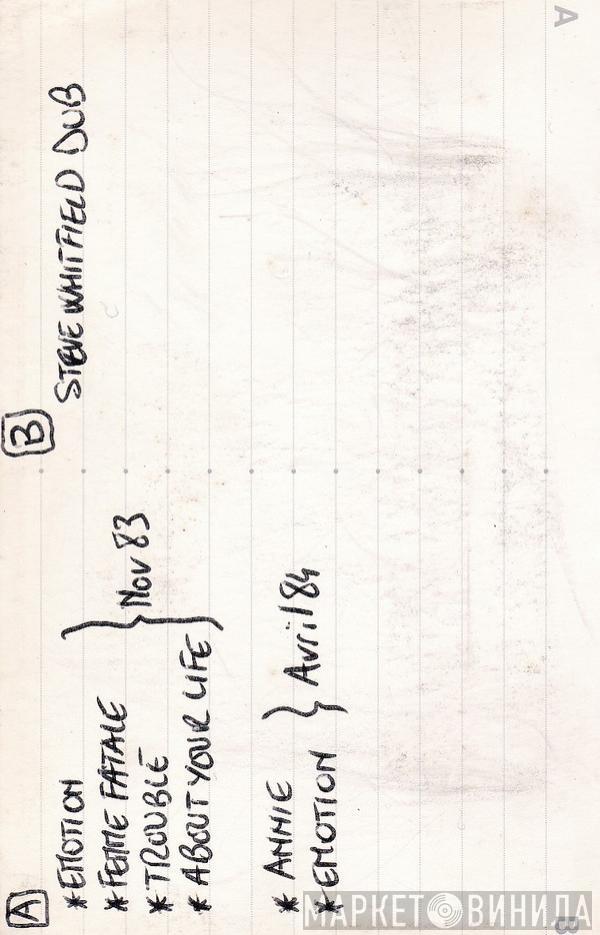 A
* EMOTION
* FEMME FATALE
* TROUBLE
* ABOUT YOUR LIFE
Nov 83
* ANNIE
* EMOTION
Avril 84
B
STEVE WHITFIELD DUB
A
B
МАРКЕТ ВИНИЛА